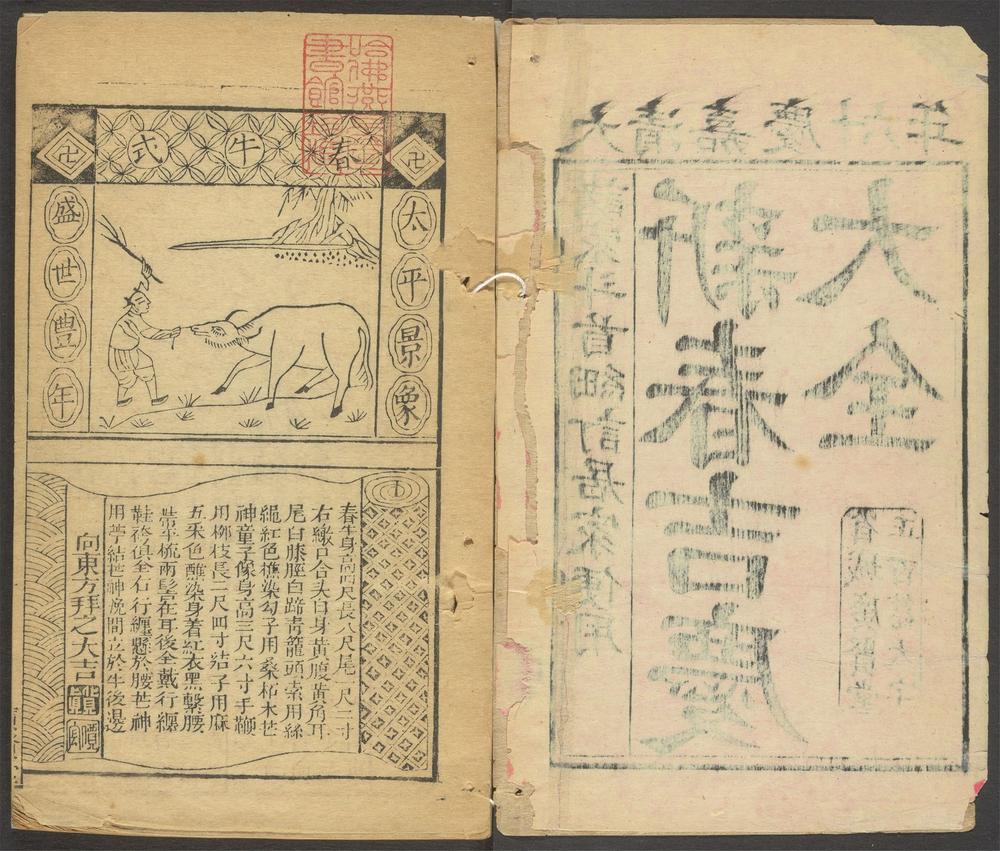 大清嘉慶廿六年
斗首細訂居家便用
新春吉慶
大全
省城
春牛式
卍
卍
太平景象
盛世豐年
春牛身高四尺長八尺尾一尺二寸
右繳戶合天白身黃腹黃角耳
尾白膝脛白蹄青籠頭索用絲
繩紅色樵染勾子用桑柘木芒
神童子像身高三尺六寸手鞭
用柳枝長二尺四寸結子用麻
五采色醮染身着紅衣黑繫腰
帶平梳兩髻在耳後全戴行纏
鞋袴俱全右行纏懸於腰芒神
用苧結芒神晚間立於牛後邊
向東方拜之大吉
哈佛燕
書館